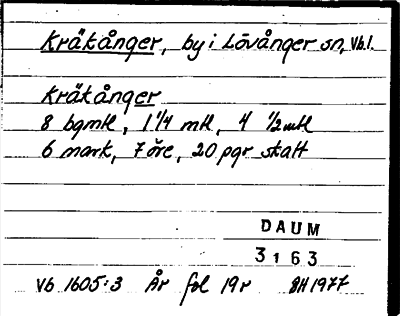 Kräkånger, by i Lövånger sn, Vb.l.
Kräkånger
8 bgmtl, 1 1/4 mtl, 4 1/2 mtl
6 mark, 7 öre, 20 pgr skatt
DAUM
3163
Vb 1605:3 År fol 19r BH 1977